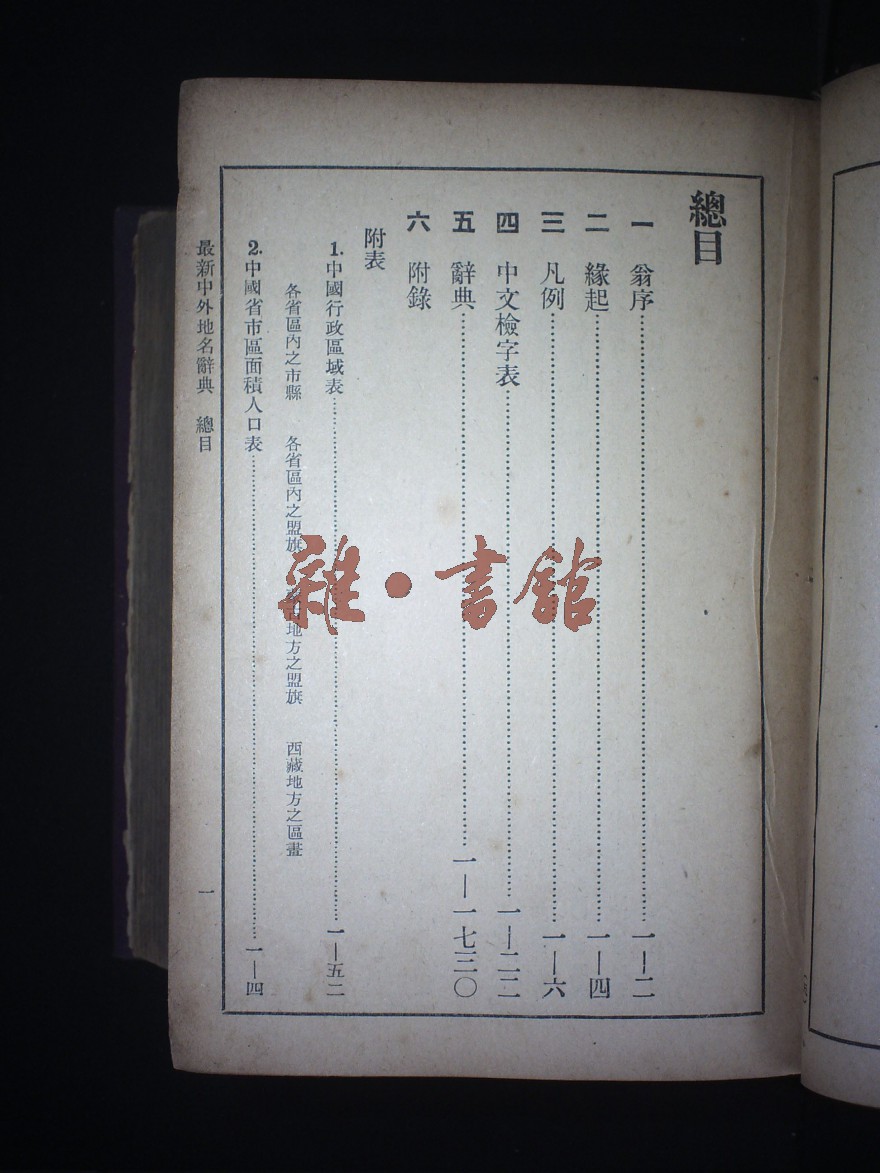 總目
一 翁序……一—二
二 緣起……一—四
三 凡例……一—六
四 中文檢字表……一—二二
五 辭典……一—一七三〇
六 附錄
附表
1.中國行政區域表……一—五二
各省區內之市縣 各省區內之盟旗 地方之盟旗 西藏地方之區畫
2.中國省市區面積人口表……一—四
最新中外地名辭典 總目 一
雜·書館